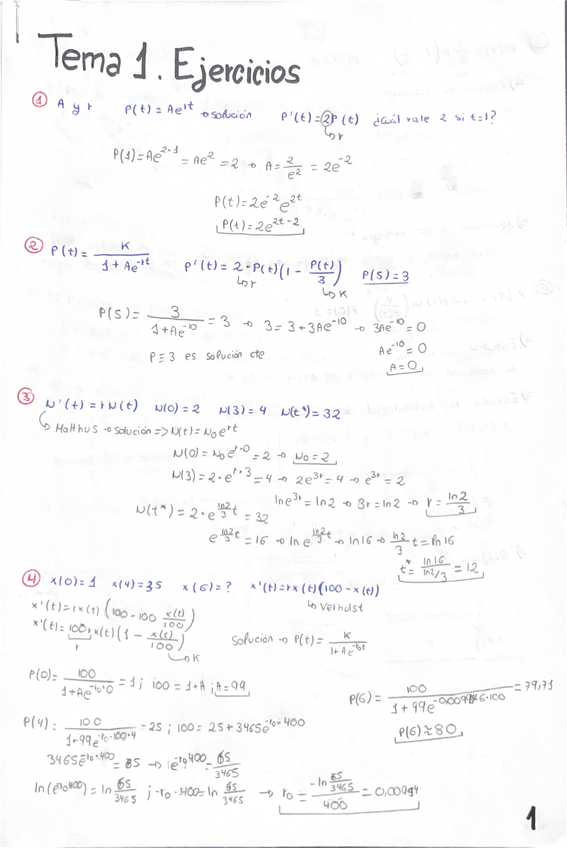 Tema 1. Ejercicios
① A y r P(t) = Ae^rt → solución P'(t) = 2P(t) ¿Cuál vale 2 si t=1?
↳ r
P(1) = Ae^2·1 = Ae^2 = 2 → A = 2/e^2 = 2e^-2
P(t) = 2e^-2 e^2t
P(t) = 2e^2t-2
② P(t) = K/(1 + Ae^-rt) P'(t) = 2·P(t)(1 - P(t)/3) P(5) = 3
↳ r ↳ K
P(5) = 3/(1 + Ae^-10) = 3 → 3 = 3 + 3Ae^-10 → 3Ae^-10 = 0
P ≡ 3 es solución cte Ae^-10 = 0
A = 0
③ N'(t) = rN(t) N(0) = 2 N(3) = 4 N(t*) = 32
↳ Malthus → solución => N(t) = N₀e^rt
N(0) = N₀e^r·0 = 2 → N₀ = 2
N(3) = 2·e^r·3 = 4 → 2e^3r = 4 → e^3r = 2
ln e^3r = ln 2 → 3r = ln 2 → r = ln 2/3
N(t*) = 2·e^(ln2/3)t = 32
e^(ln2/3)t = 16 → ln e^(ln2/3)t → ln 16 → ln2/3 t = ln 16
t* = ln 16/(ln 2/3) = 12
④ x(0) = 1 x(4) = 35 x(6) = ? x'(t) = rx(t)(100 - x(t))
↳ Verhulst
x'(t) = rx(t)(100 - 100 x(t)/100)
x'(t) = 100rx(t)(1 - x(t)/100) Solución → P(t) = K/(1 + Ae^-rot)
r ↳ K
P(0) = 100/(1 + Ae^-r₀·0) = 1; 100 = 1 + A; A = 99
P(6) = 100/(1 + 99e^-0,00994·6·100) = 79,71
P(4) = 100/(1 + 99e^-r₀·100·4) = 25; 100 = 25 + 3465e^-r₀·400
P(6) ≈ 80
3465e^-r₀·400 = 65 → e^-r₀400 = 65/3465
ln(e^-r₀400) = ln 65/3465; -r₀·400 = ln 65/3465 → r₀ = (-ln 65/3465)/400 = 0,00994
1